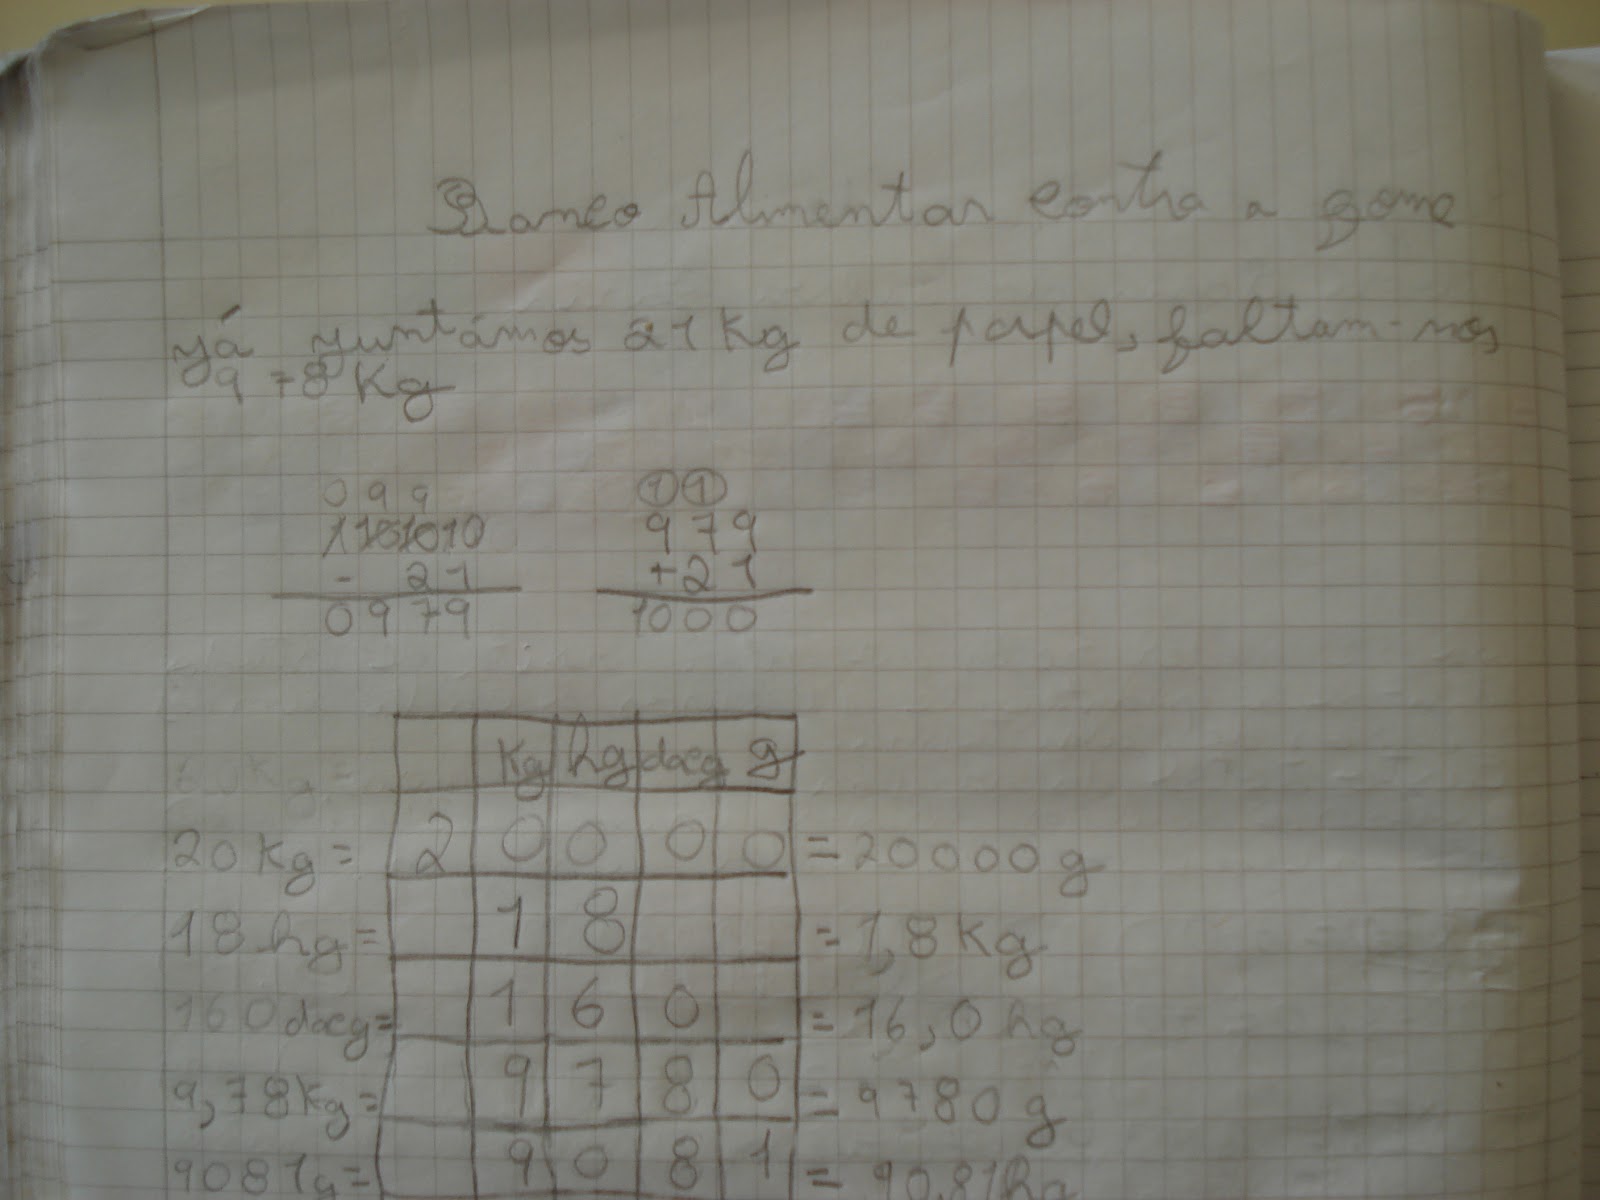 Banco Alimentar contra a fome
Já juntámos 21 Kg de papel, faltam-nos
978 Kg
0 9 9
1 10 10 10
- 21
0979
1 1
979
+21
1000
Kg hg dag g
20 Kg = 2 0 0 0 0 = 20000 g
18 hg = 1 8 = 1,8 Kg
160 dag = 1 6 0 = 16,0 hg
9,78 Kg = 9 7 8 0 = 9780 g
9081 g = 9 0 8 1 = 90,81 hg